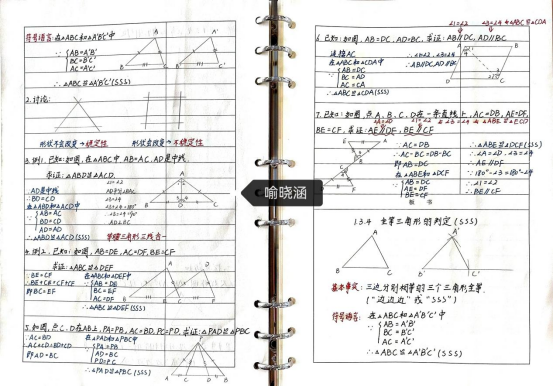 符号语言: 在△ABC和△A'B'C'中
∵ { AB=A'B'
BC=B'C'
AC=A'C'
∴△ABC≌△A'B'C'(SSS)
2. 讨论:
形状不会改变→稳定性
形状会改变→不稳定性
3. 例1. 已知: 如图, 在△ABC中, AB=AC, AD是中线,
求证: △ABD≌△ACD.
AD是中线
∴BD=CD
在△ABD和△ACD中
∵ { AB=AC
BD=CD
AD=AD
∴△ABD≌△ACD(SSS)
等腰三角形三线合一
4. 例2. 已知: 如图, AB=DE, AC=DF, BE=CF
求证: △ABC≌△DEF
∵BE=CF
∴BE+CE=CF+CE
即BC=EF
在△ABC和△DEF中
∵ { AB=DE
BC=EF
AC=DF
∴△ABC≌△DEF(SSS)
5. 如图, 点C、D在AB上, PA=PB, AC=BD, PC=PD, 求证: △PAD≌△PBC
∵AC=BD
∴AC+CD=BD+CD
即AD=BC
在△PAD和△PBC中
∵ { PA=PB
AD=BC
PD=PC
∴△PAD≌△PBC(SSS)
喻晓涵
6. 已知: 如图, AB=DC, AD=BC, 求证: AB∥DC, AD∥BC
连接AC
在△ABC和△CDA中
∵ { AB=DC
BC=AD
AC=CA
∴△ABC≌△CDA(SSS)
∴∠1=∠2, ∠3=∠4
∴AB∥DC, AD∥BC
7. 已知: 如图, 点A、B、C、D在一条直线上, AC=DB, AE=DF,
BE=CF, 求证: AE∥DF, BE∥CF
∵AC=DB
∴AC-BC=DB-BC
即AB=DC
在△ABE和△DCF中
∵ { AB=DC
AE=DF
BE=CF
∴△ABE≌△DCF(SSS)
∴∠A=∠D, ∠3=∠4
∴AE∥DF
∵180°-∠3=180°-∠4
∴∠1=∠2
∴BE∥CF
板书
1.3.4 全等三角形的判定(SSS)
基本事实: 三边分别相等的两个三角形全等.
("边边边"或"SSS")
符号语言: 在△ABC和△A'B'C'中
∵ { AB=A'B'
BC=B'C'
AC=A'C'
∴△ABC≌△A'B'C'(SSS)